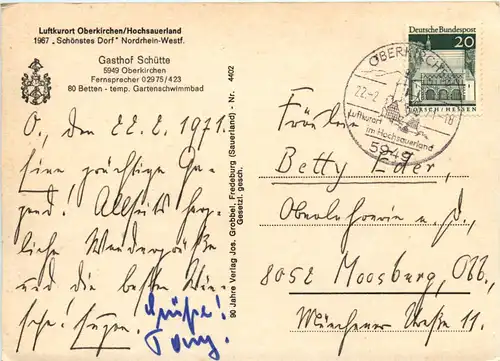 Luftkurort Oberkirchen/Hochsauerland
1967 „Schönstes Dorf" Nordrhein-Westf.
Gasthof Schütte
5949 Oberkirchen
Fernsprecher 02975/423
80 Betten - temp. Gartenschwimmbad
O., den 22. 2. 1971.
Eine prächtige Ge-
gend! Allseits herz-
liche Wandergrüße
und die besten Wün-
sche!
Grüße!
90 Jahre Verlag Jos. Grobbel, Fredeburg (Sauerland) - Nr. 4402
Gesetzl. gesch.
Deutsche Bundespost
20
LORSCH/HESSEN
OBERKIRCHEN
22.-2.
-18
Luftkurort
im Hochsauerland
5949
Fräulein
Betty Eder,
Oberlehrerin a. D.,
8052 Moosburg, Obb.,
Münchener Straße 11.